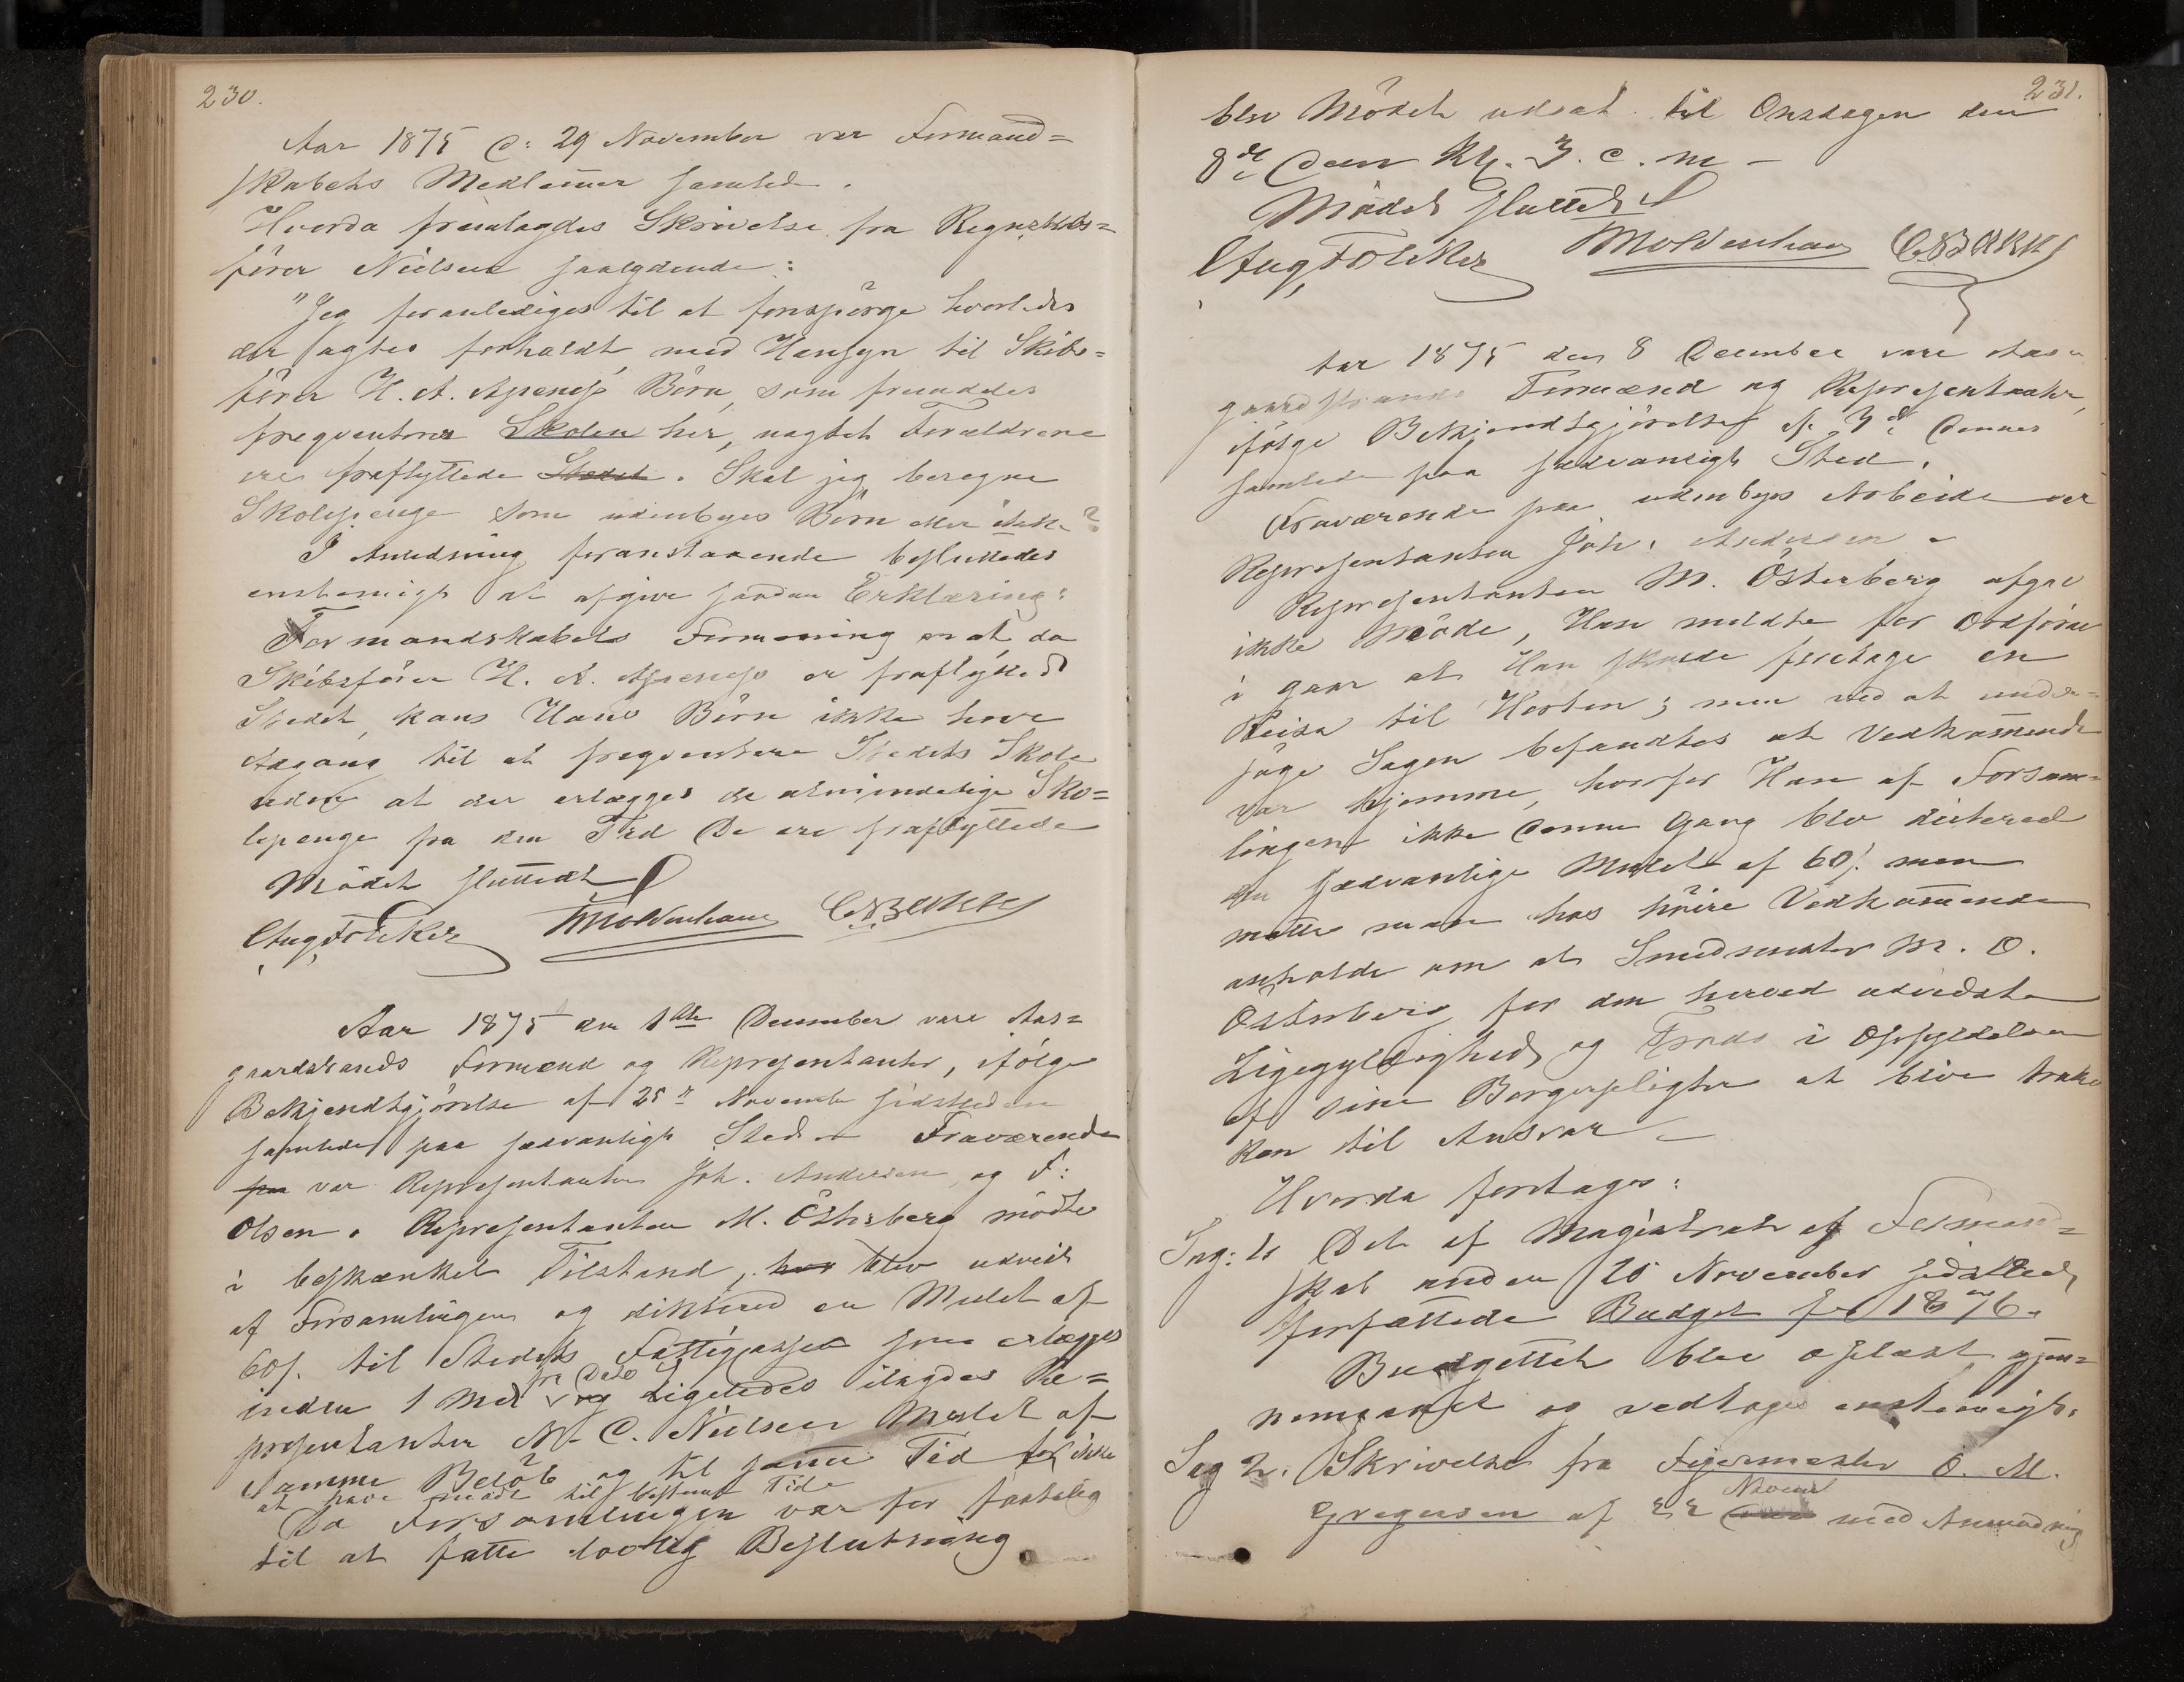 230.
Aar 1875 d: 29 November var Formand=
skabets Medlemer samled.
Hvorda fremlagdes Skrivelse fra Regnskabs=
fører Nielsen saalydende:
"Jeg foranlediges til at forespørge hvorledes
der agtes forholdt med Hensyn til Skibs=
fører H. A. Børn, som fremdeles
freqventerer Skolen her, uagtet Forældrene
ere fraflyttede Stedet. Skal jeg beregne
Skolepenge som udenbyes Børn eller ikke?
I Anledning foranstaaende besluttedes
enstemigt at afgive saadan Erklæring:
Formandskabets Formening er at da
Skibsfører H. A. er fraflytted
Stedet, kans Hans Børn ikke have
Adgang til at freqventere Stedets Skole
uden at der erlægges de almindelige Sko=
lepenge fra den Tid De ere fraflyttede
Mødet sluttedt
Aug Foleker Moldenhauer C. N. Bakke
Aar 1875 den 1ste December vare Aas=
gaardstrands Formænd og Repræsentanter, ifølge
Bekjendtgjørelse af 25de November sidstleden
samlede paa sædvanligt Sted. Fraværende
paa var Repræsentanten Joh. Andersen og F:
Olsen. Representanten M. Østerberg mødte
i beskænket Tilstand, hvor blev udvist
af Forsamlingen og diktered en Mulct af
60s. til Stedets Fattigcasse som erlægges
inden 1 Md fra Dato og Ligeledes ilagdes Re=
præsentanten N. C. Nielsen Mulct af
samme Beløb og til samme Tid for ikke
at have mødt til bestemt Tide
Da Forsamlingen var for faatalig
til at fatte lovlig Beslutning
231.
blev Mødet udsat til Onsdagen den
8de Dcem Kl. 3. e. m -
Mødet sluttedt
Aug Foleker Moldenhauer C. N. Bakke
Aar 1875 den 8 December vare Aas=
gaardstrands Formænd og Representanter,
ifølge Bekjendtgjørelse af 3de Dennes
samlede paa sædvanligt Sted.
Fraværende paa udenbyes Arbeide var
Representanten Joh. Andersen -
Representanten M. Østerberg afgav
ikke Møde, Han meldte for Ordføreren
i gaar at Han skulde foretage en
Reise til Horten; men ved at under=
søge Sagen befandtes at Vedkommende
var hjemme, hvorfor Han af Forsam=
lingen ikke denne Gang blev dictered
den sædvanlige Mulct af 60s. men
maatte man hos høiere Vedkommende
anholde om at Smedmester M. O.
Østerberg for den herved udviste
Ligegyldighed og Trods i Opfyldelsen
af sine Borgerpligter at blive truk
ken til Ansvar -
Hvorda foretages:
Sag: 1. Det af Magistrat og Formand=
skab under 25 November sidstled,
forfattede Budget for 1876.
Budgettet blev oplæst gjen=
nemgaaet og vedtages enstemigt.
Sag 2. Skrivelse fra Feiermester O. M.
Novem
Gregersen af 22 med Anmodning